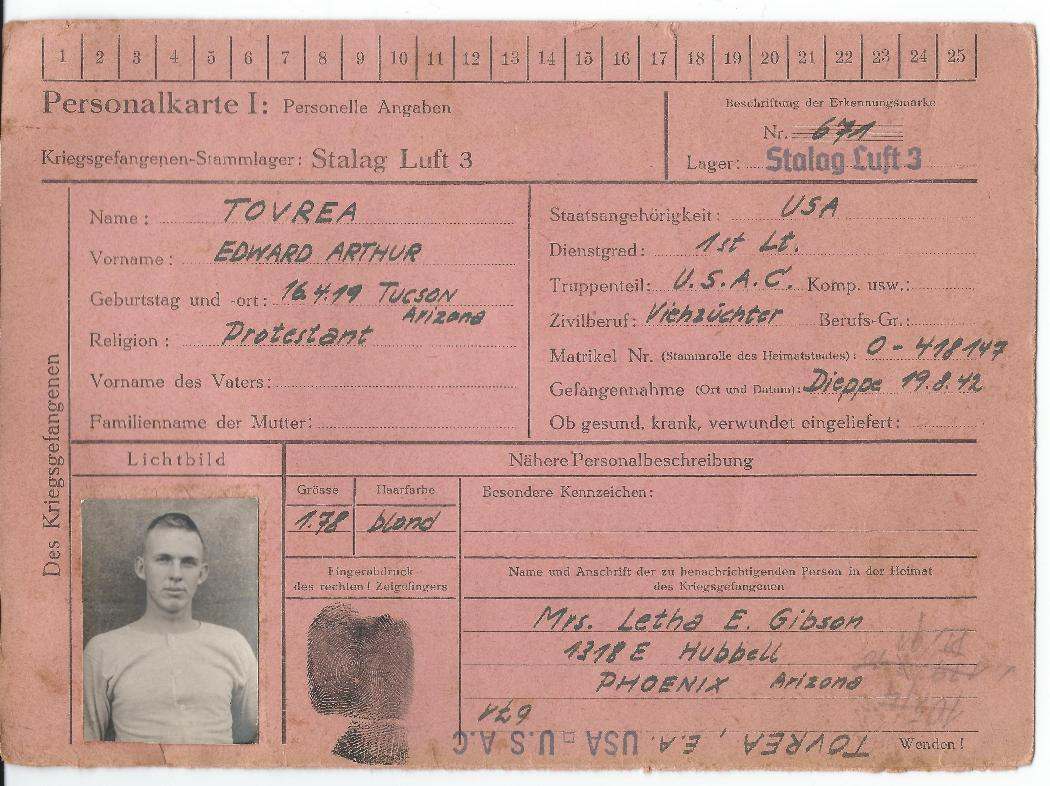 1 2 3 4 5 6 7 8 9 10 11 12 13 14 15 16 17 18 19 20 21 22 23 24 25
Personalkarte I: Personelle Angaben
Kriegsgefangenen-Stammlager: Stalag Luft 3
Beschriftung der Erkennungsmarke
Nr. 671
Lager: Stalag Luft 3
Des Kriegsgefangenen
Name: TOVREA
Vorname: EDWARD ARTHUR
Geburtstag und -ort: 16.4.19 TUCSON
Arizona
Religion: Protestant
Vorname des Vaters:
Familienname der Mutter:
Staatsangehörigkeit: USA
Dienstgrad: 1st Lt.
Truppenteil: U.S.A.C. Komp. usw.:
Zivilberuf: Viehzüchter Berufs-Gr.:
Matrikel Nr. (Stammrolle des Heimatstaates): O-418147
Gefangennahme (Ort und Datum): Dieppe 19.8.42
Ob gesund, krank, verwundet eingeliefert:
Lichtbild
Nähere Personalbeschreibung
Grösse
1.78
Haarfarbe
blond
Besondere Kennzeichen:
Fingerabdruck
des rechten! Zeigefingers
Name und Anschrift der zu benachrichtigenden Person in der Heimat
des Kriegsgefangenen
Mrs. Letha E. Gibson
1318 E Hubbell
PHOENIX Arizona
671
TOVREA, E.A. USA U.S.A.C
Wenden!